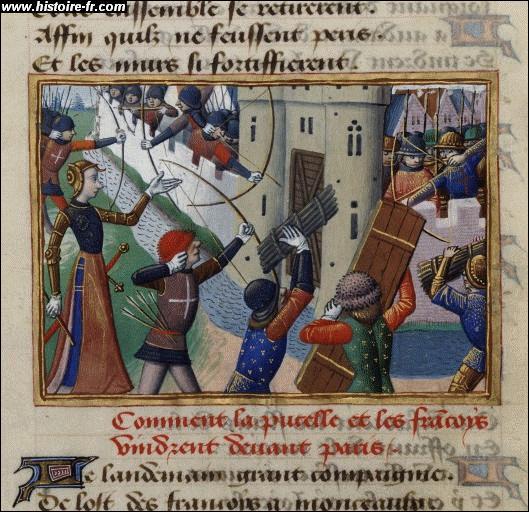 www.histoire-fr.com
ensemble se retirerent.
Affin quilz ne feussent peris.
Et les murs si fortiffierent.
Comment la pucelle et les francois
vindrent deuant paris.
e landemain grant compaignie.
De lost des francois a monceaulx